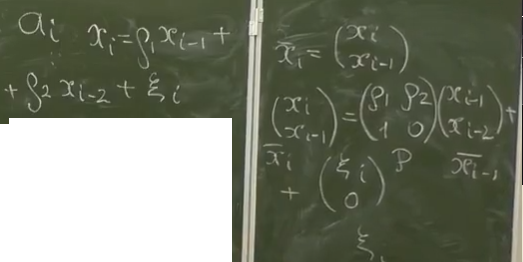 aᵢ xᵢ = ρ₁xᵢ₋₁ +
+ ρ₂ xᵢ₋₂ + ξᵢ
x̄ᵢ = (xᵢ xᵢ₋₁)
(xᵢ xᵢ₋₁) = (ρ₁ ρ₂ 1 0)(xᵢ₋₁ xᵢ₋₂) +
x̄ᵢ P x̄ᵢ₋₁
+ (ξᵢ 0)
ξ